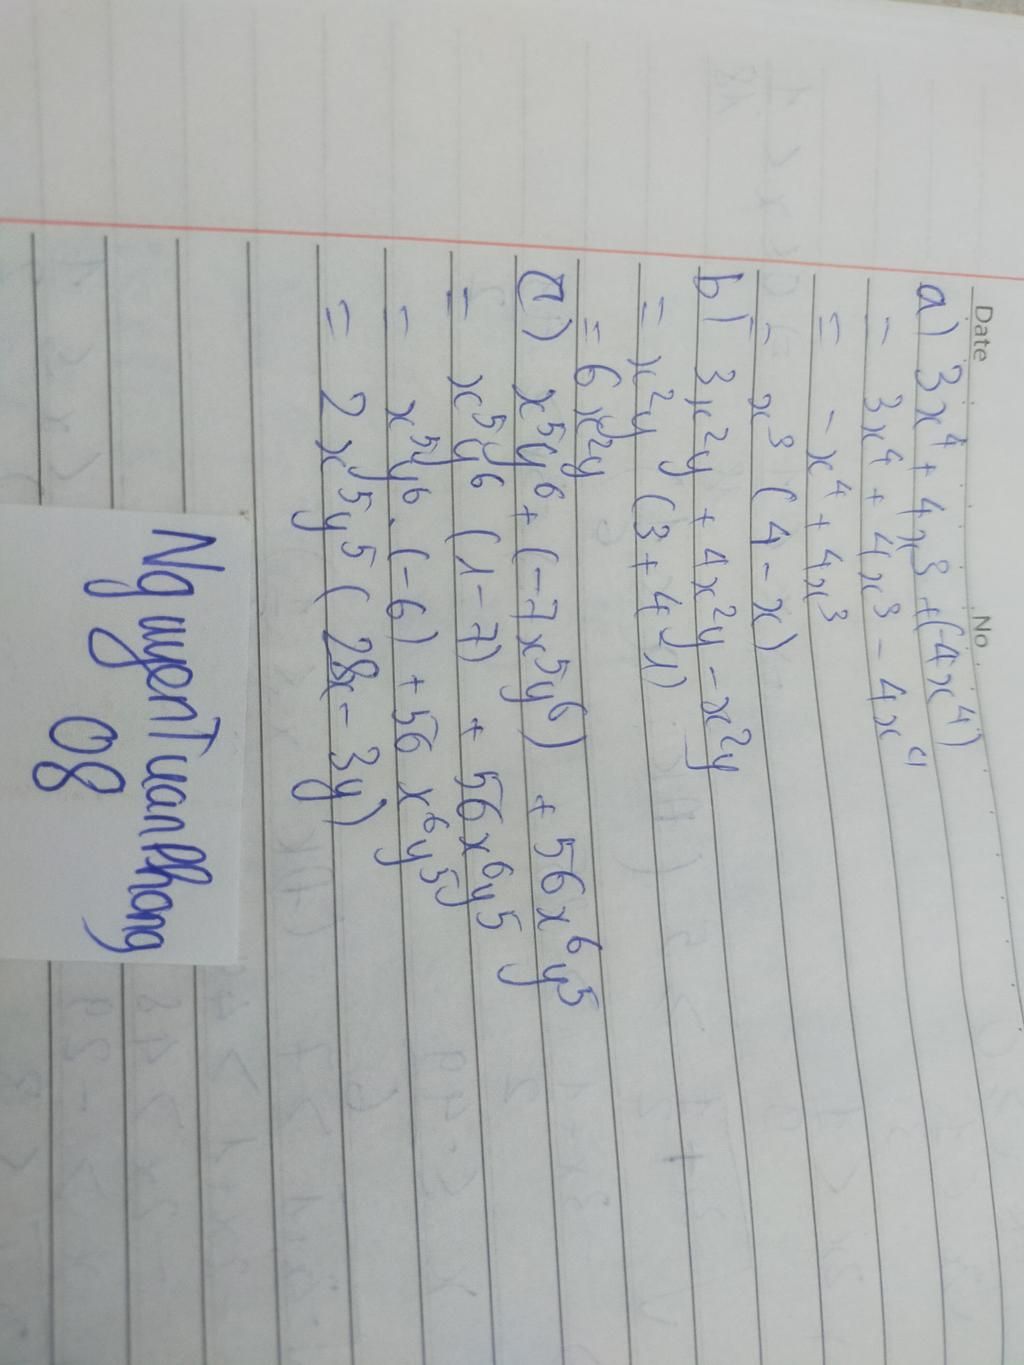 Date No
a) 3x⁴ + 4x³ + (-4x⁴)
= 3x⁴ + 4x³ - 4x⁴
= -x⁴ + 4x³
= x³ (4 - x)
b) 3x²y + 4x²y - x²y
= x²y (3 + 4 - 1)
= 6x²y
c) x⁵y⁶ + (-7x⁵y⁶) + 56x⁶y⁵
= x⁵y⁶ (1 - 7) + 56x⁶y⁵
= x⁵y⁶ . (-6) + 56x⁶y⁵
= 2x⁵y⁵ (28x - 3y)
NguyenTuanPhong
08